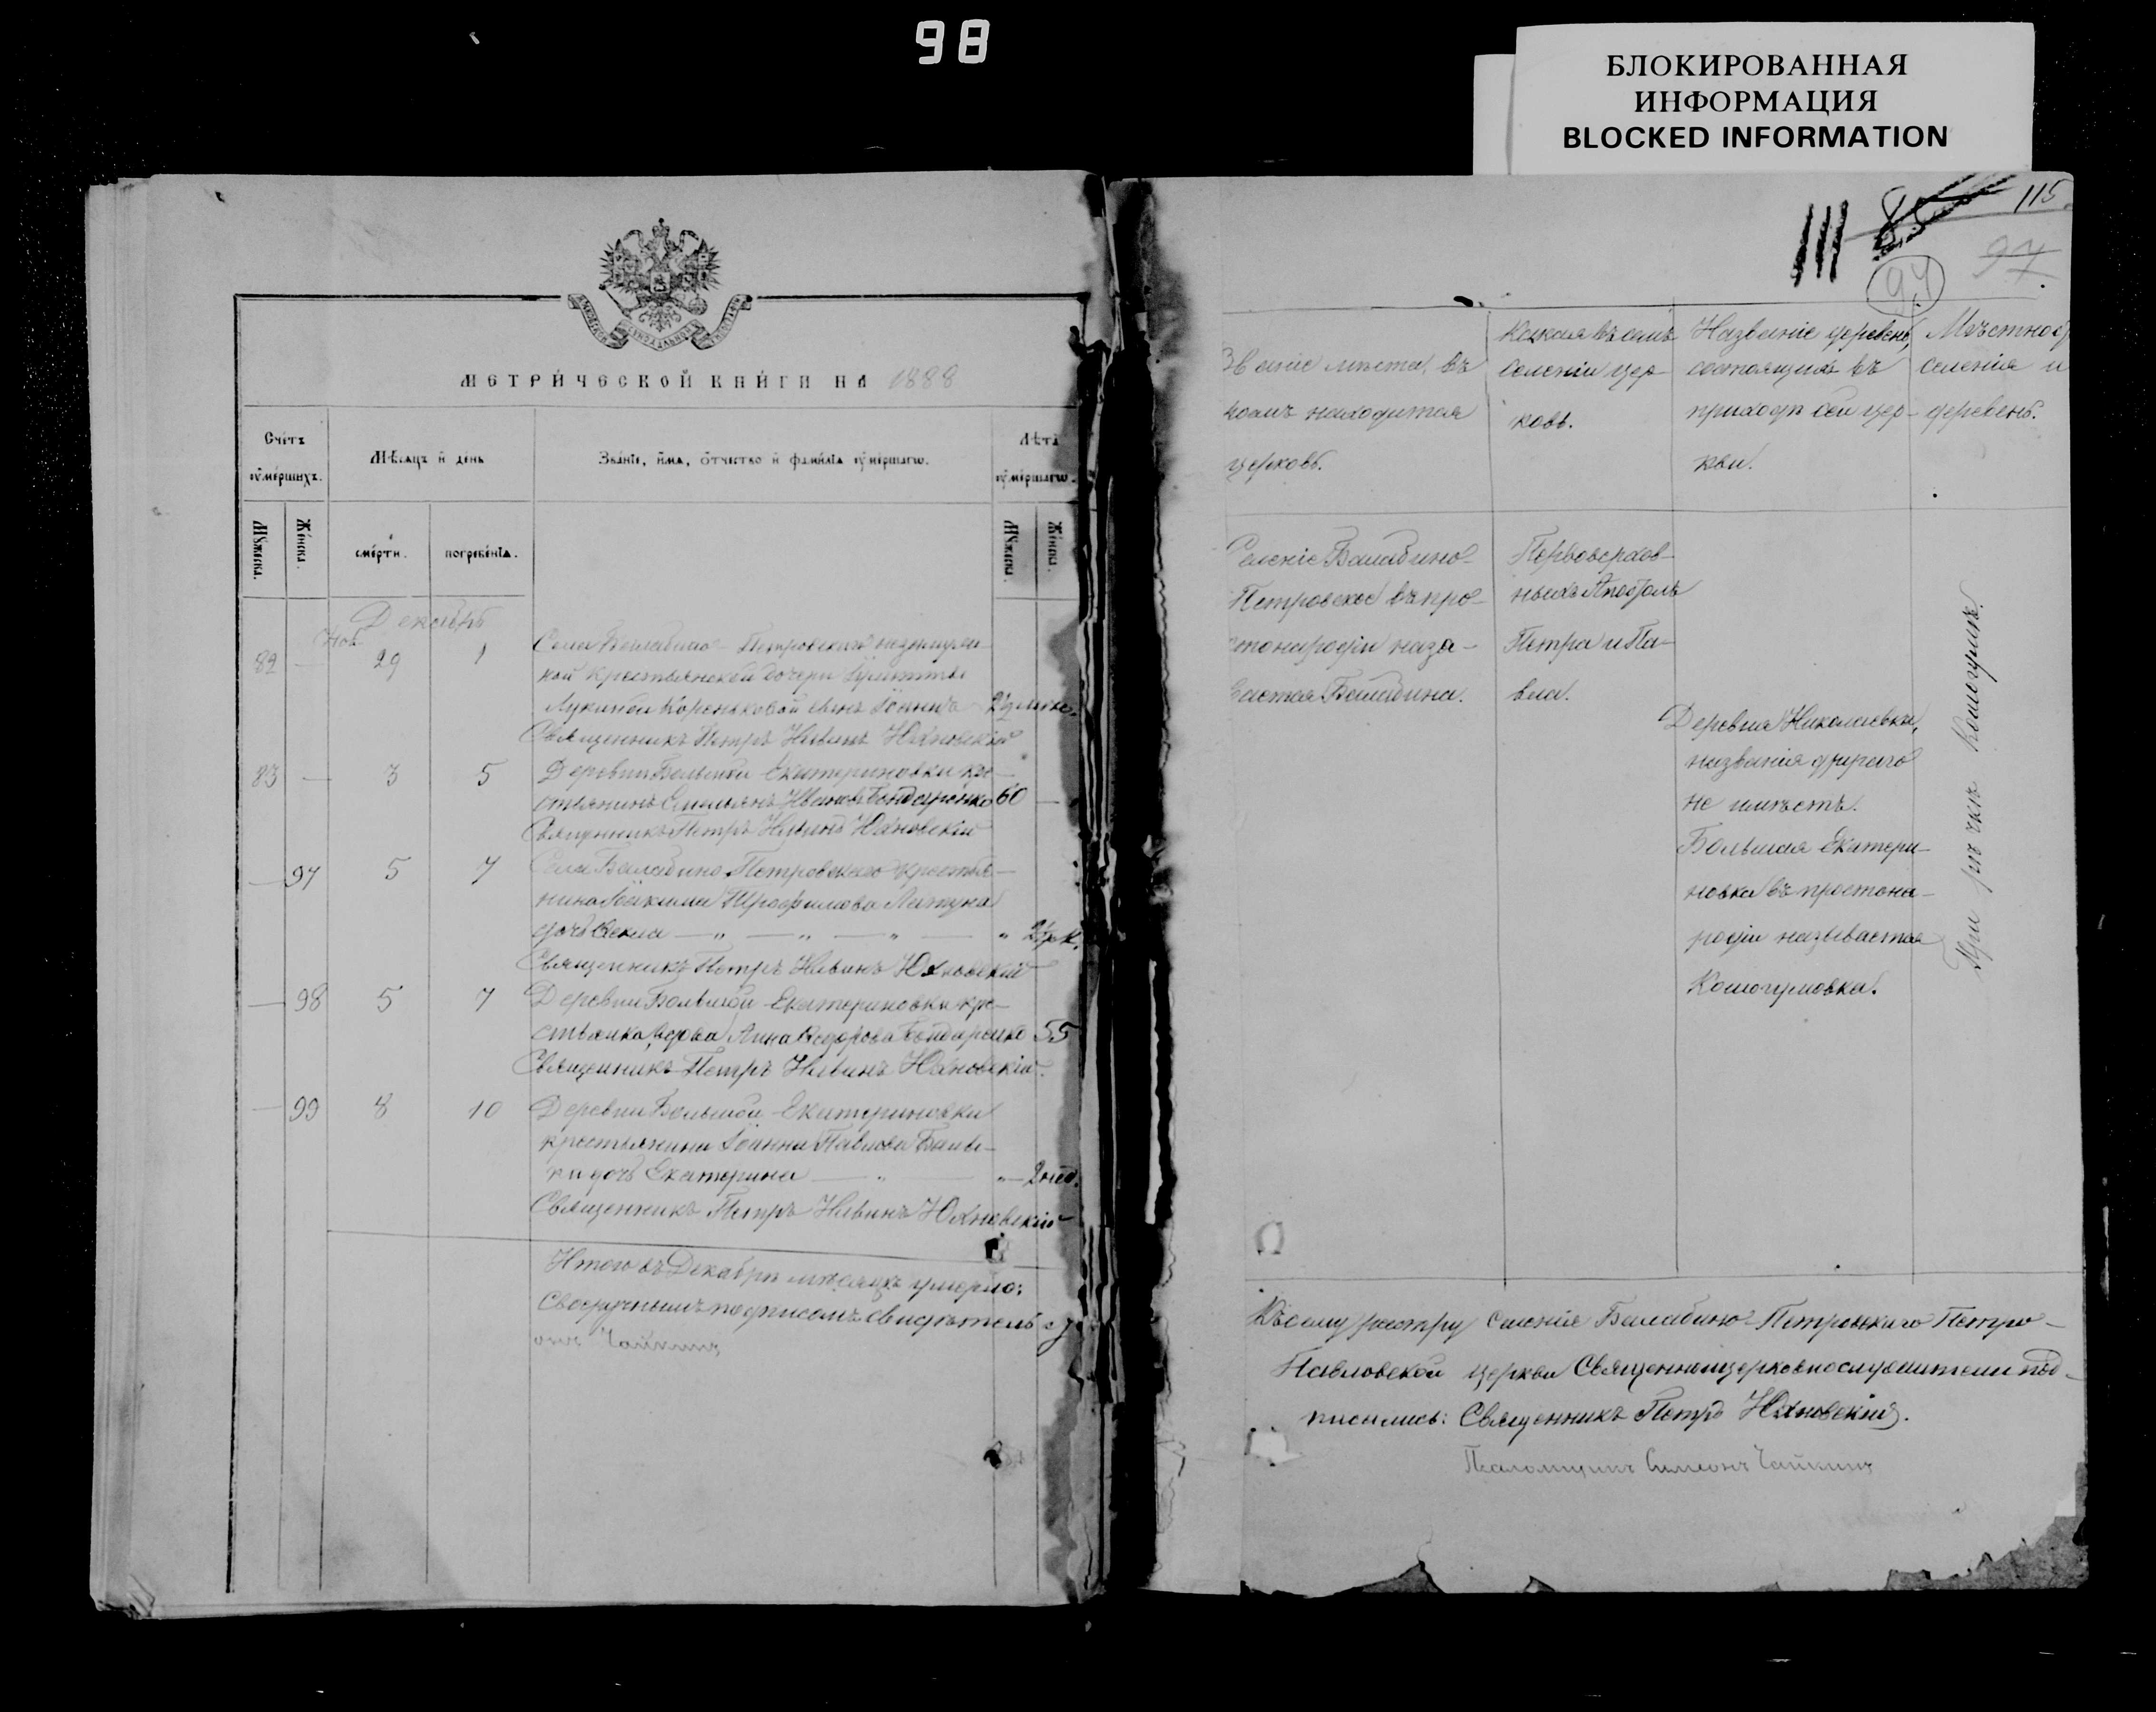 98
БЛОКИРОВАННАЯ
ИНФОРМАЦИЯ
BLOCKED INFORMATION
МЕТРИ́ЧЕСКОЙ КНИ́ГИ НА 1888
Сче́тъ
ᲂу҆ме́ршихъ.
Мѣ́сяцъ и҆ де́нь
Зва́нїе, и҆́мѧ, ѻ҆́тчество и҆ фами́лїѧ ᲂу҆ме́ршагѡ.
Лѣ́та
ᲂу҆ме́ршагѡ.
Мꙋ́жеска.
Же́нска.
сме́рти.
погребе́нїѧ.
Мꙋ́жеска.
Же́нска.
Декабрь
Ноя.
82 — 29 1 Села Балабино-Петровскаго
кой крестьянской дочери
Лукиной Кореньковой сынъ Іоаннъ
Священникъ Петръ Юхновскій
83 — 3 5 Деревни Большой Екатериновки кре-
стьянинъ Емельянъ Ивановъ Бондаренко 60 —
Священникъ Петръ Юхновскій
— 97 5 7 Села Балабино-Петровскаго крестья-
нина Іоакима Трофимова
дочь Ѳекла — „ — „ — „ — „
Священникъ Петръ Юхновскій
— 98 5 7 Деревни Большой Екатериновки кре-
стьянка вдова Анна Ѳедорова Бондаренко 55
Священникъ Петръ Юхновскій.
— 99 8 10 Деревни Большой Екатериновки
крестьянина Іоанна Павлова
дочь Екатерина — „ — „ — 2 нед.
Священникъ Петръ Юхновскій
Итого въ Декабрѣ мѣсяцѣ умерло:
Своеручнымъ подписомъ свидѣтель
Чайкинъ
III
115
94
97
званіе мѣста, въ
коемъ находится
церковь.
Какая въ семъ
селеніи цер-
ковь.
Названіе деревень,
состоящихъ въ
приходѣ сей цер-
кви.
Мѣстнос
селенія и
деревень.
Селеніе Балабино-
Петровское въ про-
стонародіи назы-
вается Балабина.
Первоверхов-
ныхъ Апостолъ
Петра и Па-
вла.
Деревня Николаевка,
названія другаго
не имѣетъ.
Большая Екатери-
новка въ простона-
родіи называется
Кошогумовка.
При рѣчкѣ Кошогумѣ.
Къ сему реэстру селенія Балабино-Петровскаго Петро-
Павловской церкви Священноцерковнослужители под-
писались: Священникъ Петръ Юхновскій.
Псаломщикъ Симеонъ Чайкинъ